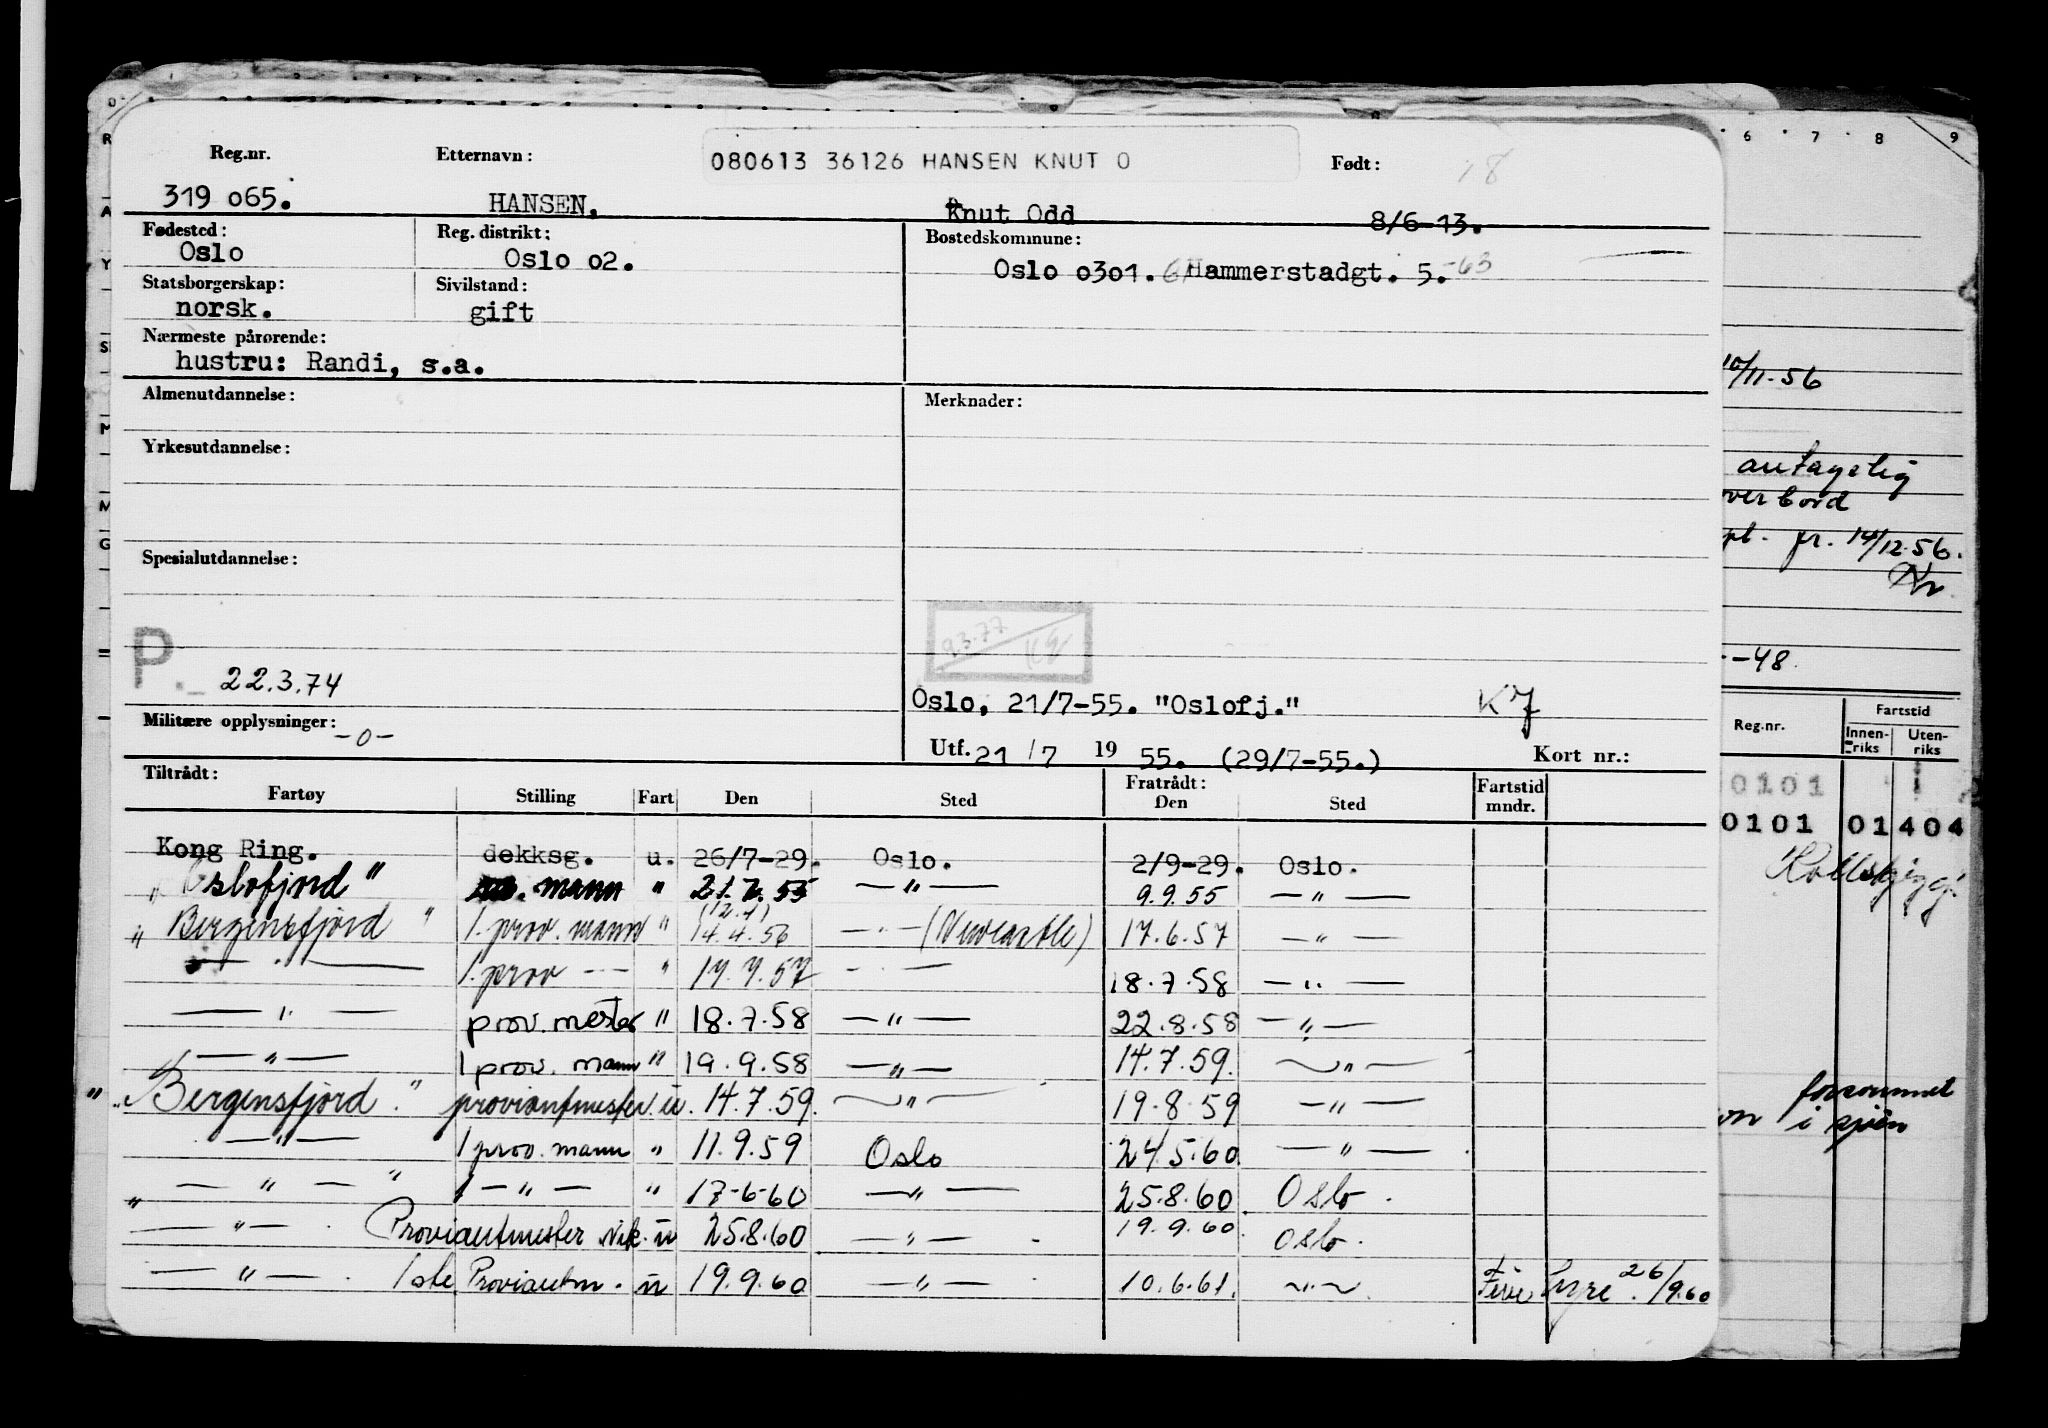 Reg.nr. Etternavn: 080613 36126 HANSEN KNUT O Født: 18
319 065. HANSEN, Knut Odd 8/6-13.
Fødested: Reg. distrikt: Bostedskommune:
Oslo Oslo 02. Oslo 0301. 61 Hammerstadgt. 5. -63
Statsborgerskap: Sivilstand:
norsk. gift
Nærmeste pårørende:
hustru: Randi, s.a.
Almenutdannelse: Merknader:
Yrkesutdannelse:
Spesialutdannelse:
P. 22.3.74
Oslo, 21/7-55. "Oslofj." KJ
Militære opplysninger: -0-
Utf. 21/7 19 55. (29/7-55.) Kort nr.:
Tiltrådt: Fratrådt: Fartstid
Fartøy Stilling Fart Den Sted Den Sted mndr.
Kong Ring. dekksg. u. 26/7-29. Oslo. 2/9-29. Oslo.
"Oslofjord" mann " 21.7.55 — " — 9.9.55 — " —
"Bergensfjord" 1. prov. mann " (12.4) 14.4.56 — " — (Newcastle) 17.6.57 — " —
— " — 1. prov — - — " 17.7.57 — " — 18.7.58 — " —
— " — prov. mester " 18.7.58 — " — 22.8.58 — " —
— " — 1 prov. mann " 19.9.58 — " — 14.7.59. — " —
"Bergensfjord." proviantmester. u. 14.7.59. — " — 19.8.59 — " —
— " — 1 prov. mann " 11.9.59 Oslo 24.5.60. — " —
" — " — " 1 — " — " 17-6-60 — " — 25.8.60. Oslo.
— " — . Proviantmester vik. u 25.8.60 — " — 19.9.60. Oslo.
— " — . 1ste Proviantm. u 19.9.60 — " — 10.6.61. — " — 26/9.60
6 7 8 9
10/11-56
antagelig
over bord
pr. 14/12.56.
-48.
Reg.nr. Fartstid
Innen-riks Uten-riks
0101 1
0101 01 404
forsvunnet
i sjøen